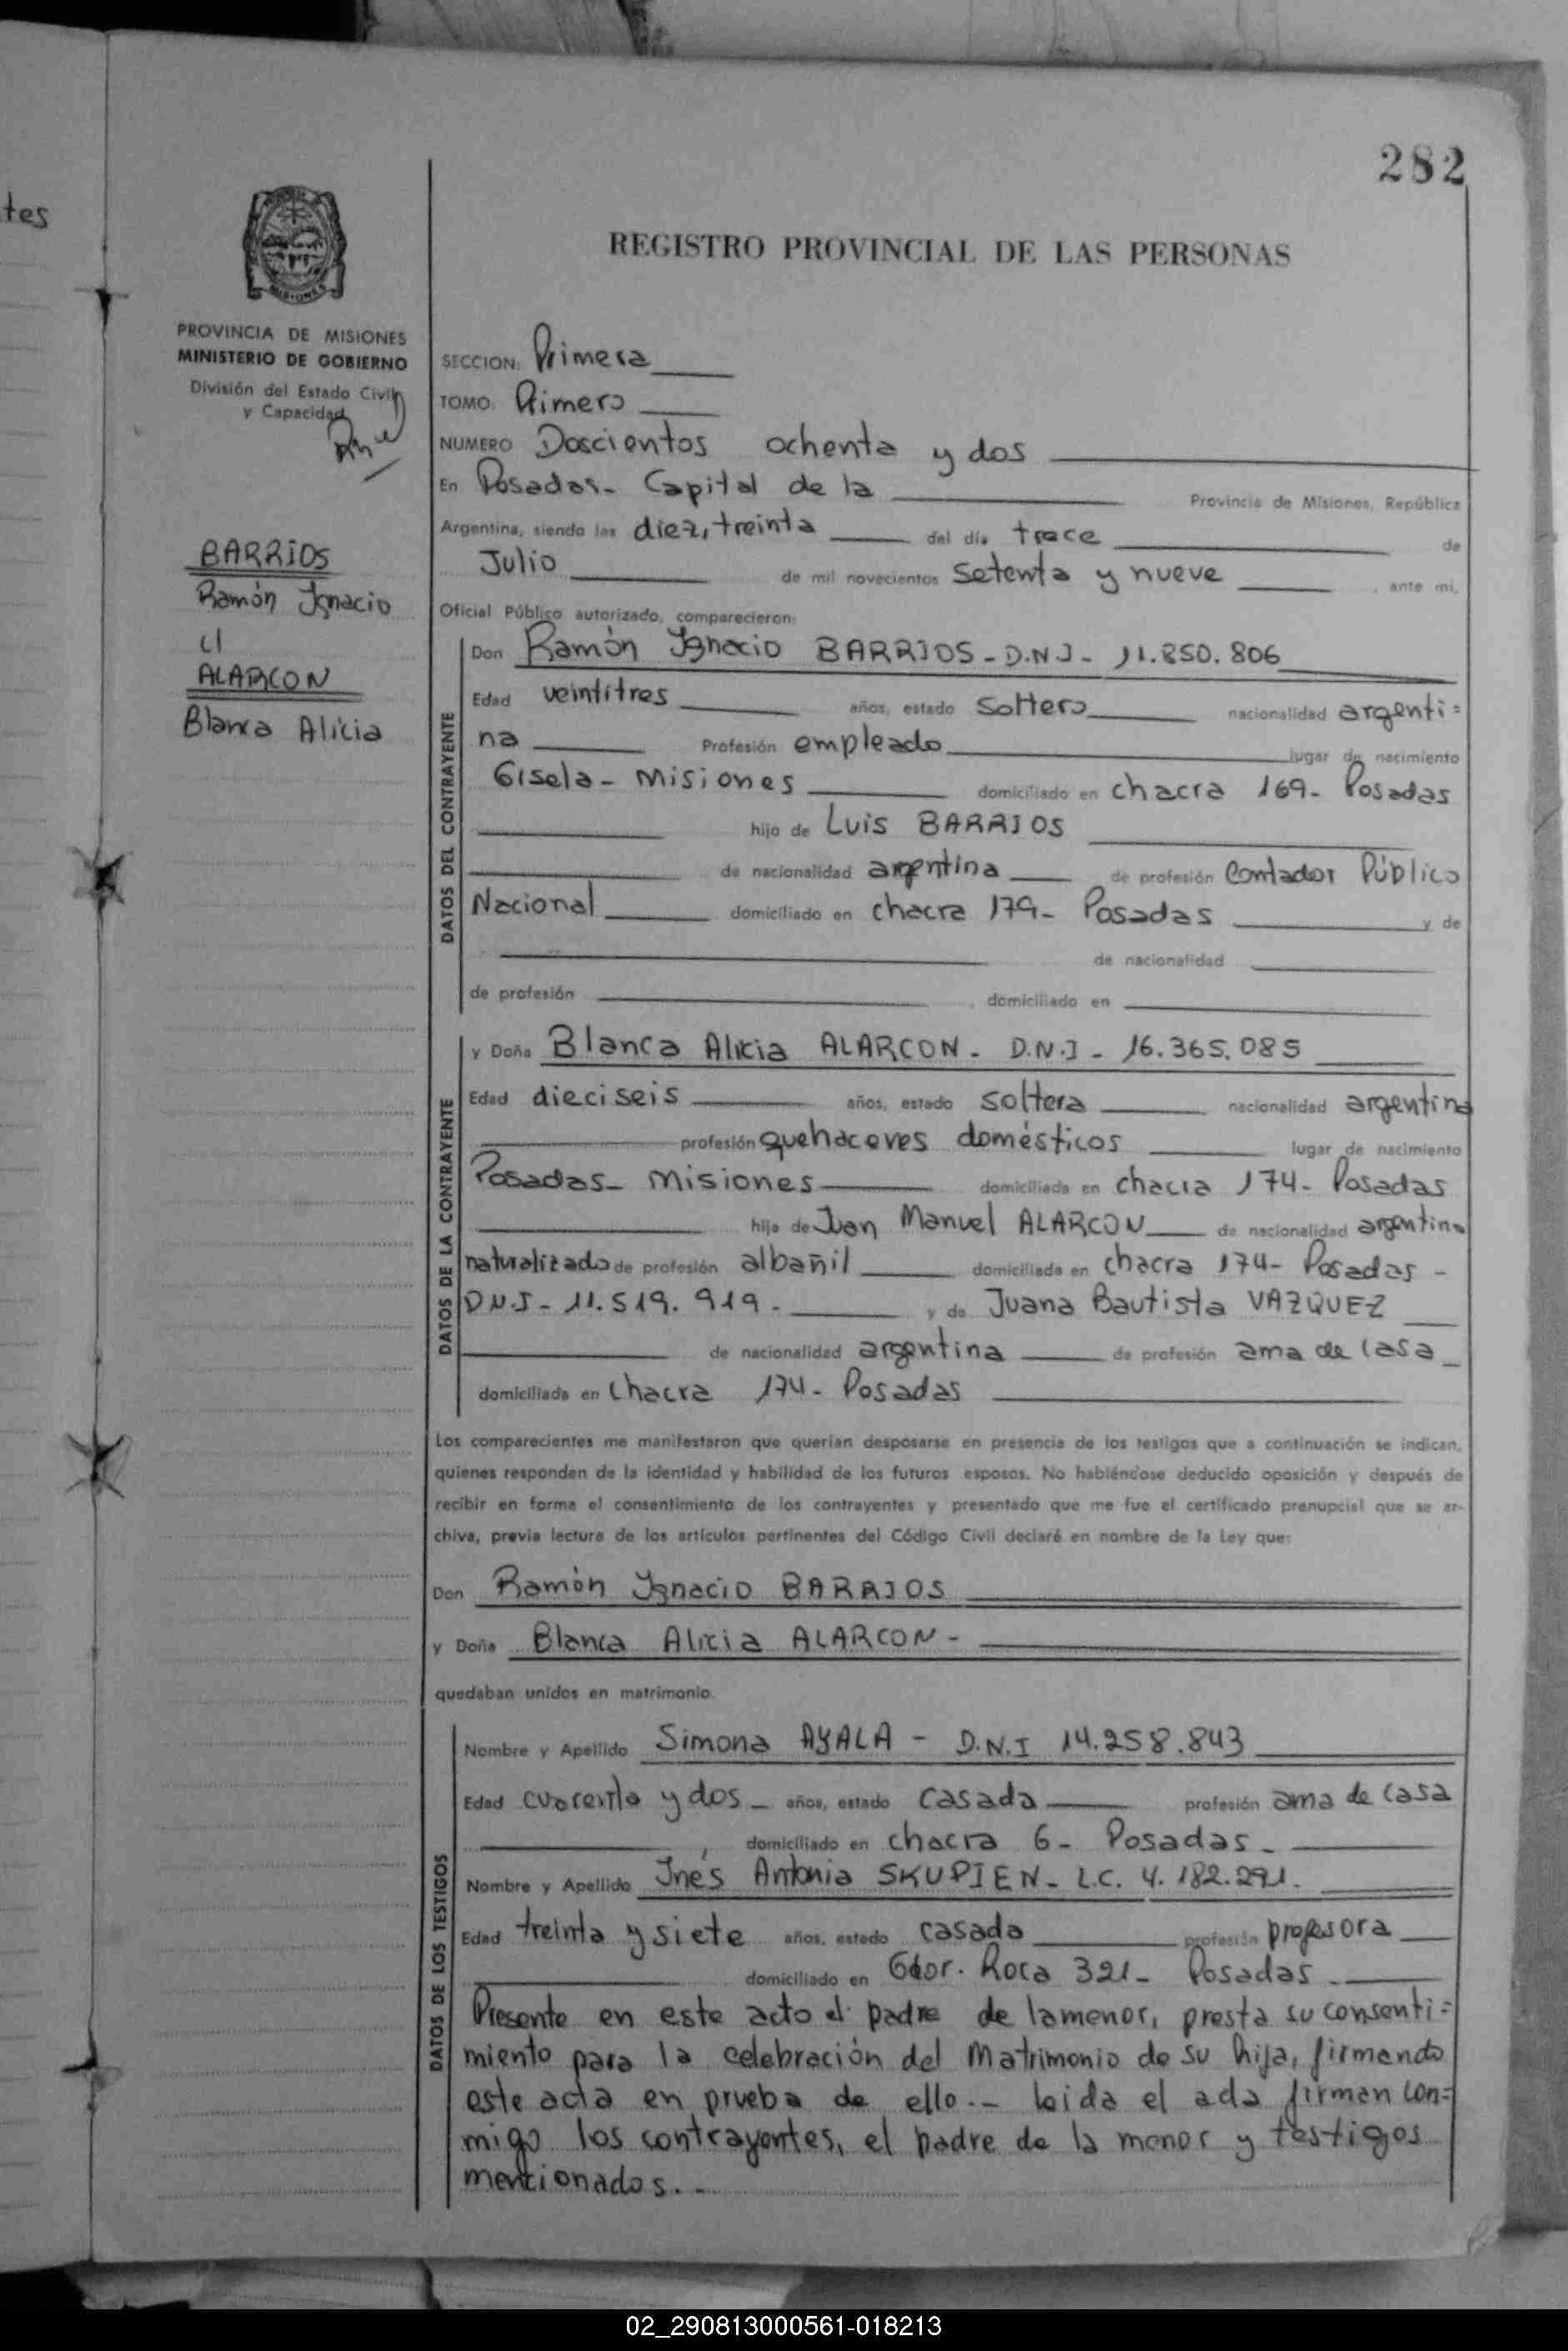 282
tes
REGISTRO PROVINCIAL DE LAS PERSONAS
MISIONES
PROVINCIA DE MISIONES
MINISTERIO DE GOBIERNO
División del Estado Civil
y Capacidad
BARRIOS
Ramón Ignacio
c/
ALARCON
Blanca Alicia
SECCION: Primera
TOMO: Primero
NUMERO Doscientos ochenta y dos
En Posadas- Capital de la Provincia de Misiones, República
Argentina, siendo las diez, treinta del día trece de
Julio de mil novecientos setenta y nueve , ante mi,
Oficial Público autorizado, comparecieron:
DATOS DEL CONTRAYENTE
Don Ramón Ignacio BARRIOS - D.N.I - 11.850.806
Edad veintitres años, estado soltero nacionalidad argenti=
na Profesión empleado lugar de nacimiento
Gisela - Misiones domiciliado en chacra 169- Posadas
hijo de Luis BARRIOS
de nacionalidad argentina de profesión Contador Público
Nacional domiciliado en chacra 179- Posadas y de
de nacionalidad
de profesión , domiciliado en
DATOS DE LA CONTRAYENTE
y Doña Blanca Alicia ALARCON - D.N.I - 16.365.085
Edad dieciseis años, estado soltera nacionalidad argentina
profesión quehaceres domésticos lugar de nacimiento
Posadas- Misiones domiciliada en chacra 174- Posadas
hija de Juan Manuel ALARCON de nacionalidad argentino
naturalizado de profesión albañil domiciliada en chacra 174- Posadas -
D.N.I - 11.519.919.- y de Juana Bautista VAZQUEZ
de nacionalidad argentina de profesión ama de casa
domiciliada en chacra 174- Posadas
Los comparecientes me manifestaron que querían desposarse en presencia de los testigos que a continuación se indican,
quienes responden de la identidad y habilidad de los futuros esposos. No habiéndose deducido oposición y después de
recibir en forma el consentimiento de los contrayentes y presentado que me fue el certificado prenupcial que se ar-
chiva, previa lectura de los artículos pertinentes del Código Civil declaré en nombre de la Ley que:
Don Ramón Ignacio BARRIOS
y Doña Blanca Alicia ALARCON -
quedaban unidos en matrimonio.
DATOS DE LOS TESTIGOS
Nombre y Apellido Simona AYALA - D.N.I 14.258.843
Edad cuarenta y dos - años, estado casada profesión ama de casa
domiciliado en chacra 6- Posadas -
Nombre y Apellido Inés Antonia SKUPIEN - L.C. 4.182.291.
Edad treinta y siete años, estado casada profesión profesora
domiciliado en Gdor. Roca 321- Posadas -
Presente en este acto el padre de la menor, presta su consenti=
miento para la celebración del Matrimonio de su hija, firmando
este acta en prueba de ello.- Leida el acta firman con=
migo los contrayentes, el padre de la menor y testigos
mencionados.-
02_290813000561-018213